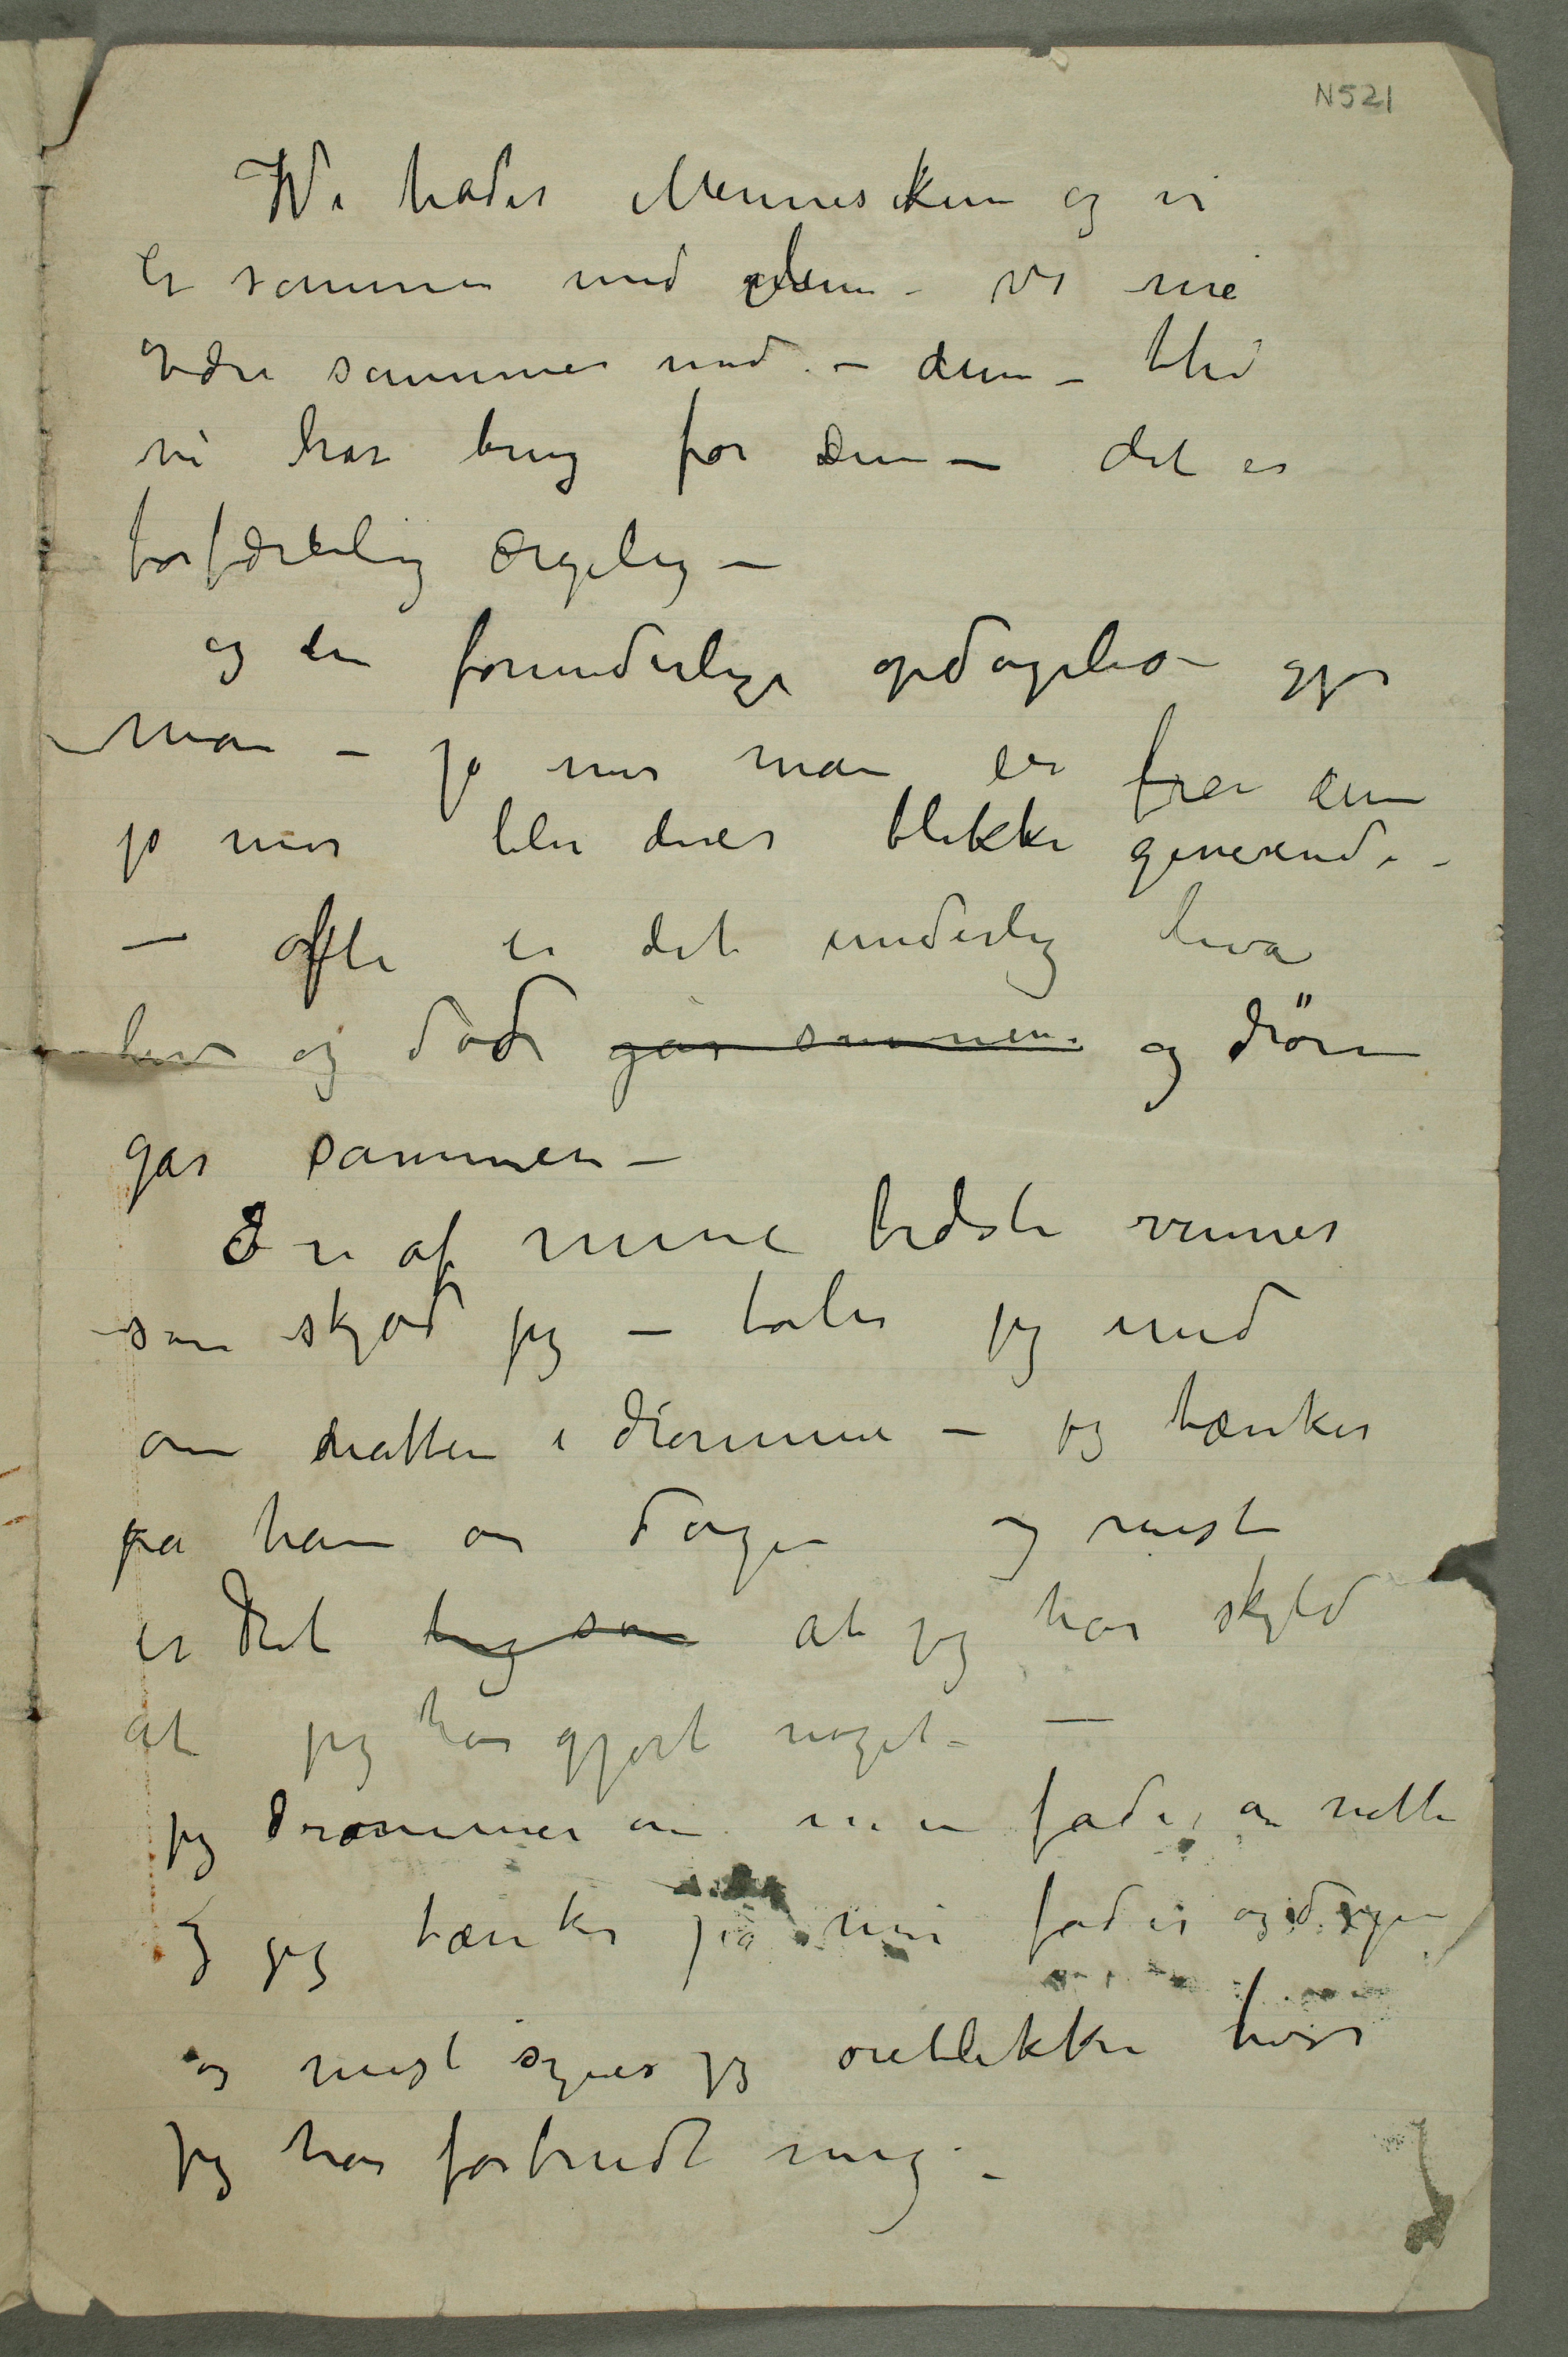 N521
Vi hader Menneskene og vi
er sammen med dem – vi må
være sammen med – dem – thi
vi har brug for dem – det er
forfærdelig ærgelig –
og den forunderlige opdagelse gjør
man – jo mer man er fra dem
jo mer blir deres blikke generende –
– ofte er det underlig hva
liv og død går sammen og drøm
går sammen –
En af mine bedste venner
som skjød sig – taler jeg med
om natten i drømme – jeg tænker
på ham om dagen og mest
er det ting som at jeg har skyld
at jeg har gjort noget –
jeg drømmer om min fader om natten
og jeg tænker på min fader og dagen
og mest synes jeg øieblikke hvor
jeg har forbrudt mig –